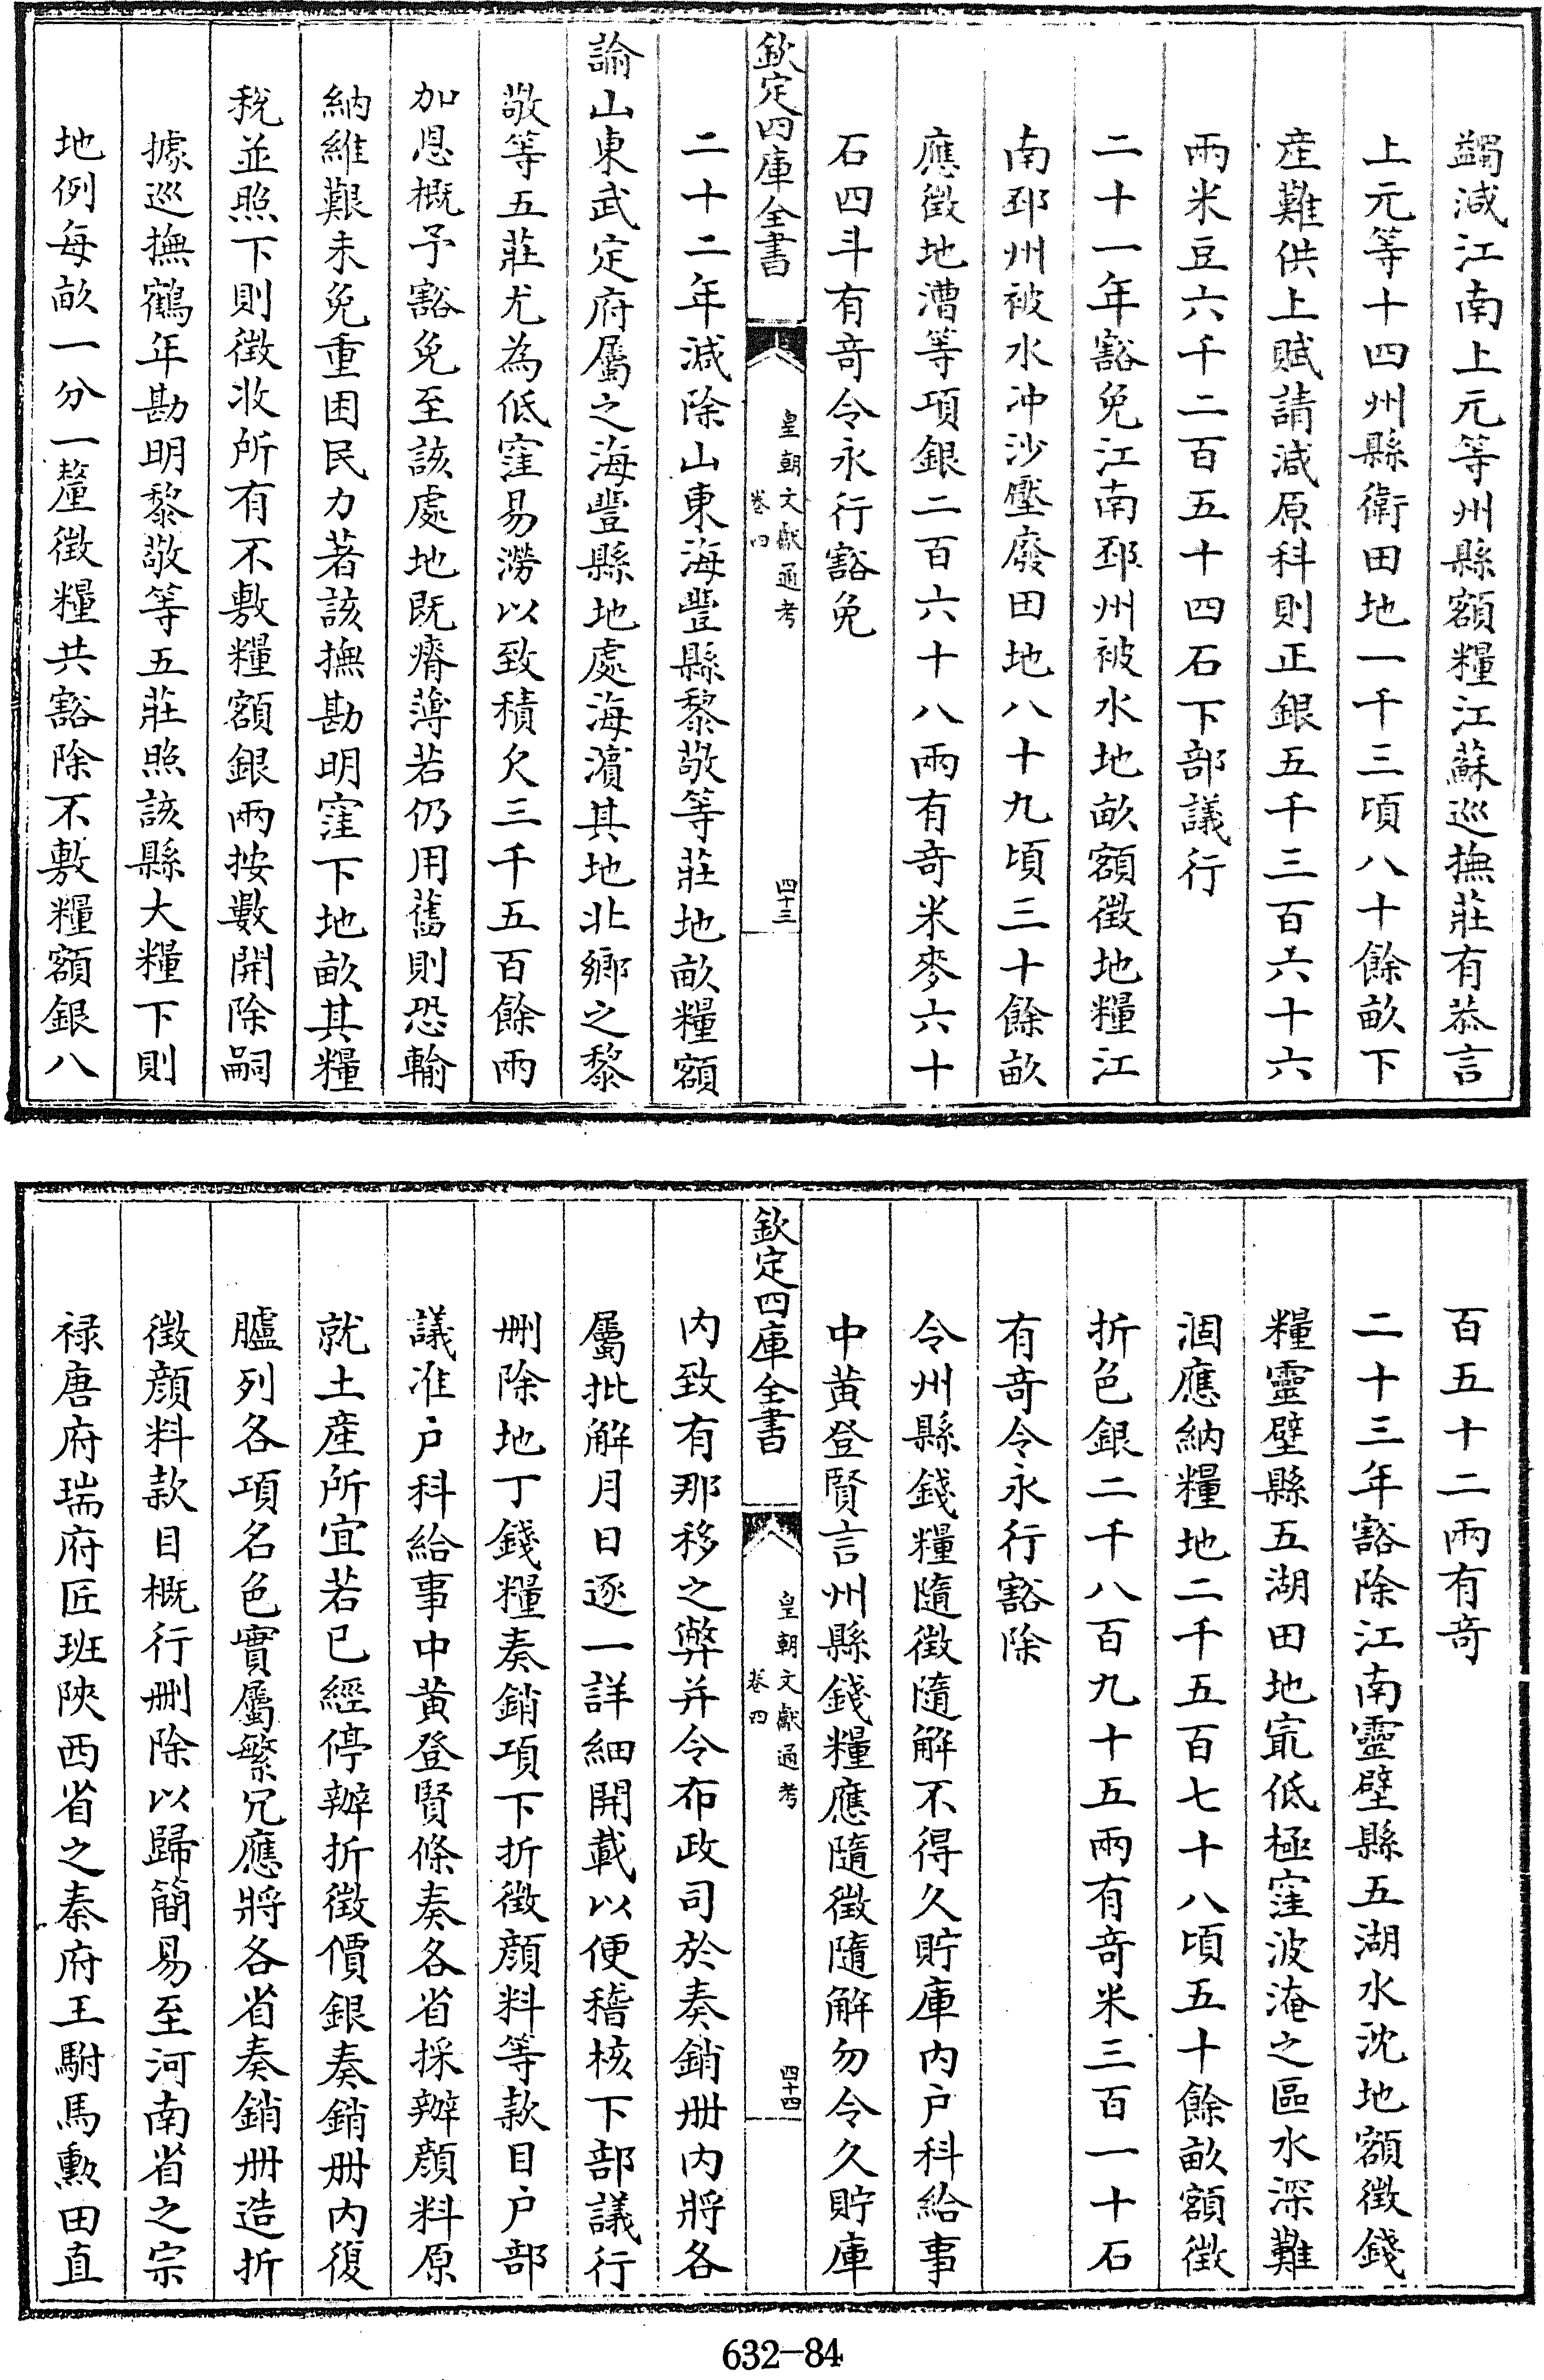 蠲減江南上元等州縣額糧江蘇巡撫莊有恭言
上元等十四州縣衛田地一千三頃八十餘畝下
産難供上賦請減原科則正銀五千三百六十六
兩米豆六千二百五十四石下部議行
二十一年豁免江南邳州被水地畝額徵地糧江
南邳州被水沖沙壓廢田地八十九頃三十餘畝
應徵地漕等項銀二百六十八兩有奇米麥六十
石四斗有奇令永行豁免
欽定四庫全書
皇朝文獻通考
卷四
四十三
二十二年減除山東海豐縣黎敬等莊地畝糧額
諭山東武定府屬之海豐縣地處海濱其地北鄉之黎
敬等五莊尤為低窪易澇以致積欠三千五百餘兩
加恩概予豁免至該處地既瘠薄若仍用舊則恐輸
納維艱未免重困民力著該撫勘明窪下地畝其糧
稅並照下則徵收所有不敷糧額銀兩按數開除嗣
據巡撫鶴年勘明黎敬等五莊照該縣大糧下則
地例每畝一分一釐徵糧共豁除不敷糧額銀八
百五十二兩有奇
二十三年豁除江南靈壁縣五湖水沈地額徵錢
糧靈壁縣五湖田地窊低極窪波淹之區水深難
涸應納糧地二千五百七十八頃五十餘畝額徵
折色銀二千八百九十五兩有奇米三百一十石
有奇令永行豁除
令州縣錢糧隨徵隨解不得久貯庫内户科給事
中黄登賢言州縣錢糧應隨徵隨解勿令久貯庫
欽定四庫全書
皇朝文獻通考
卷四
四十四
内致有那移之弊并令布政司於奏銷册内將各
屬批解月日逐一詳細開載以便稽核下部議行
刪除地丁錢糧奏銷項下折徵顔料等款目户部
議准户科給事中黄登賢條奏各省採辦顔料原
就土産所宜若已經停辦折徵價銀奏銷册内復
臚列各項名色實屬繁冗應將各省奏銷册造折
徵顔料款目概行刪除以歸簡易至河南省之宗
禄唐府瑞府匠班陜西省之秦府王駙馬勲田直
632-84